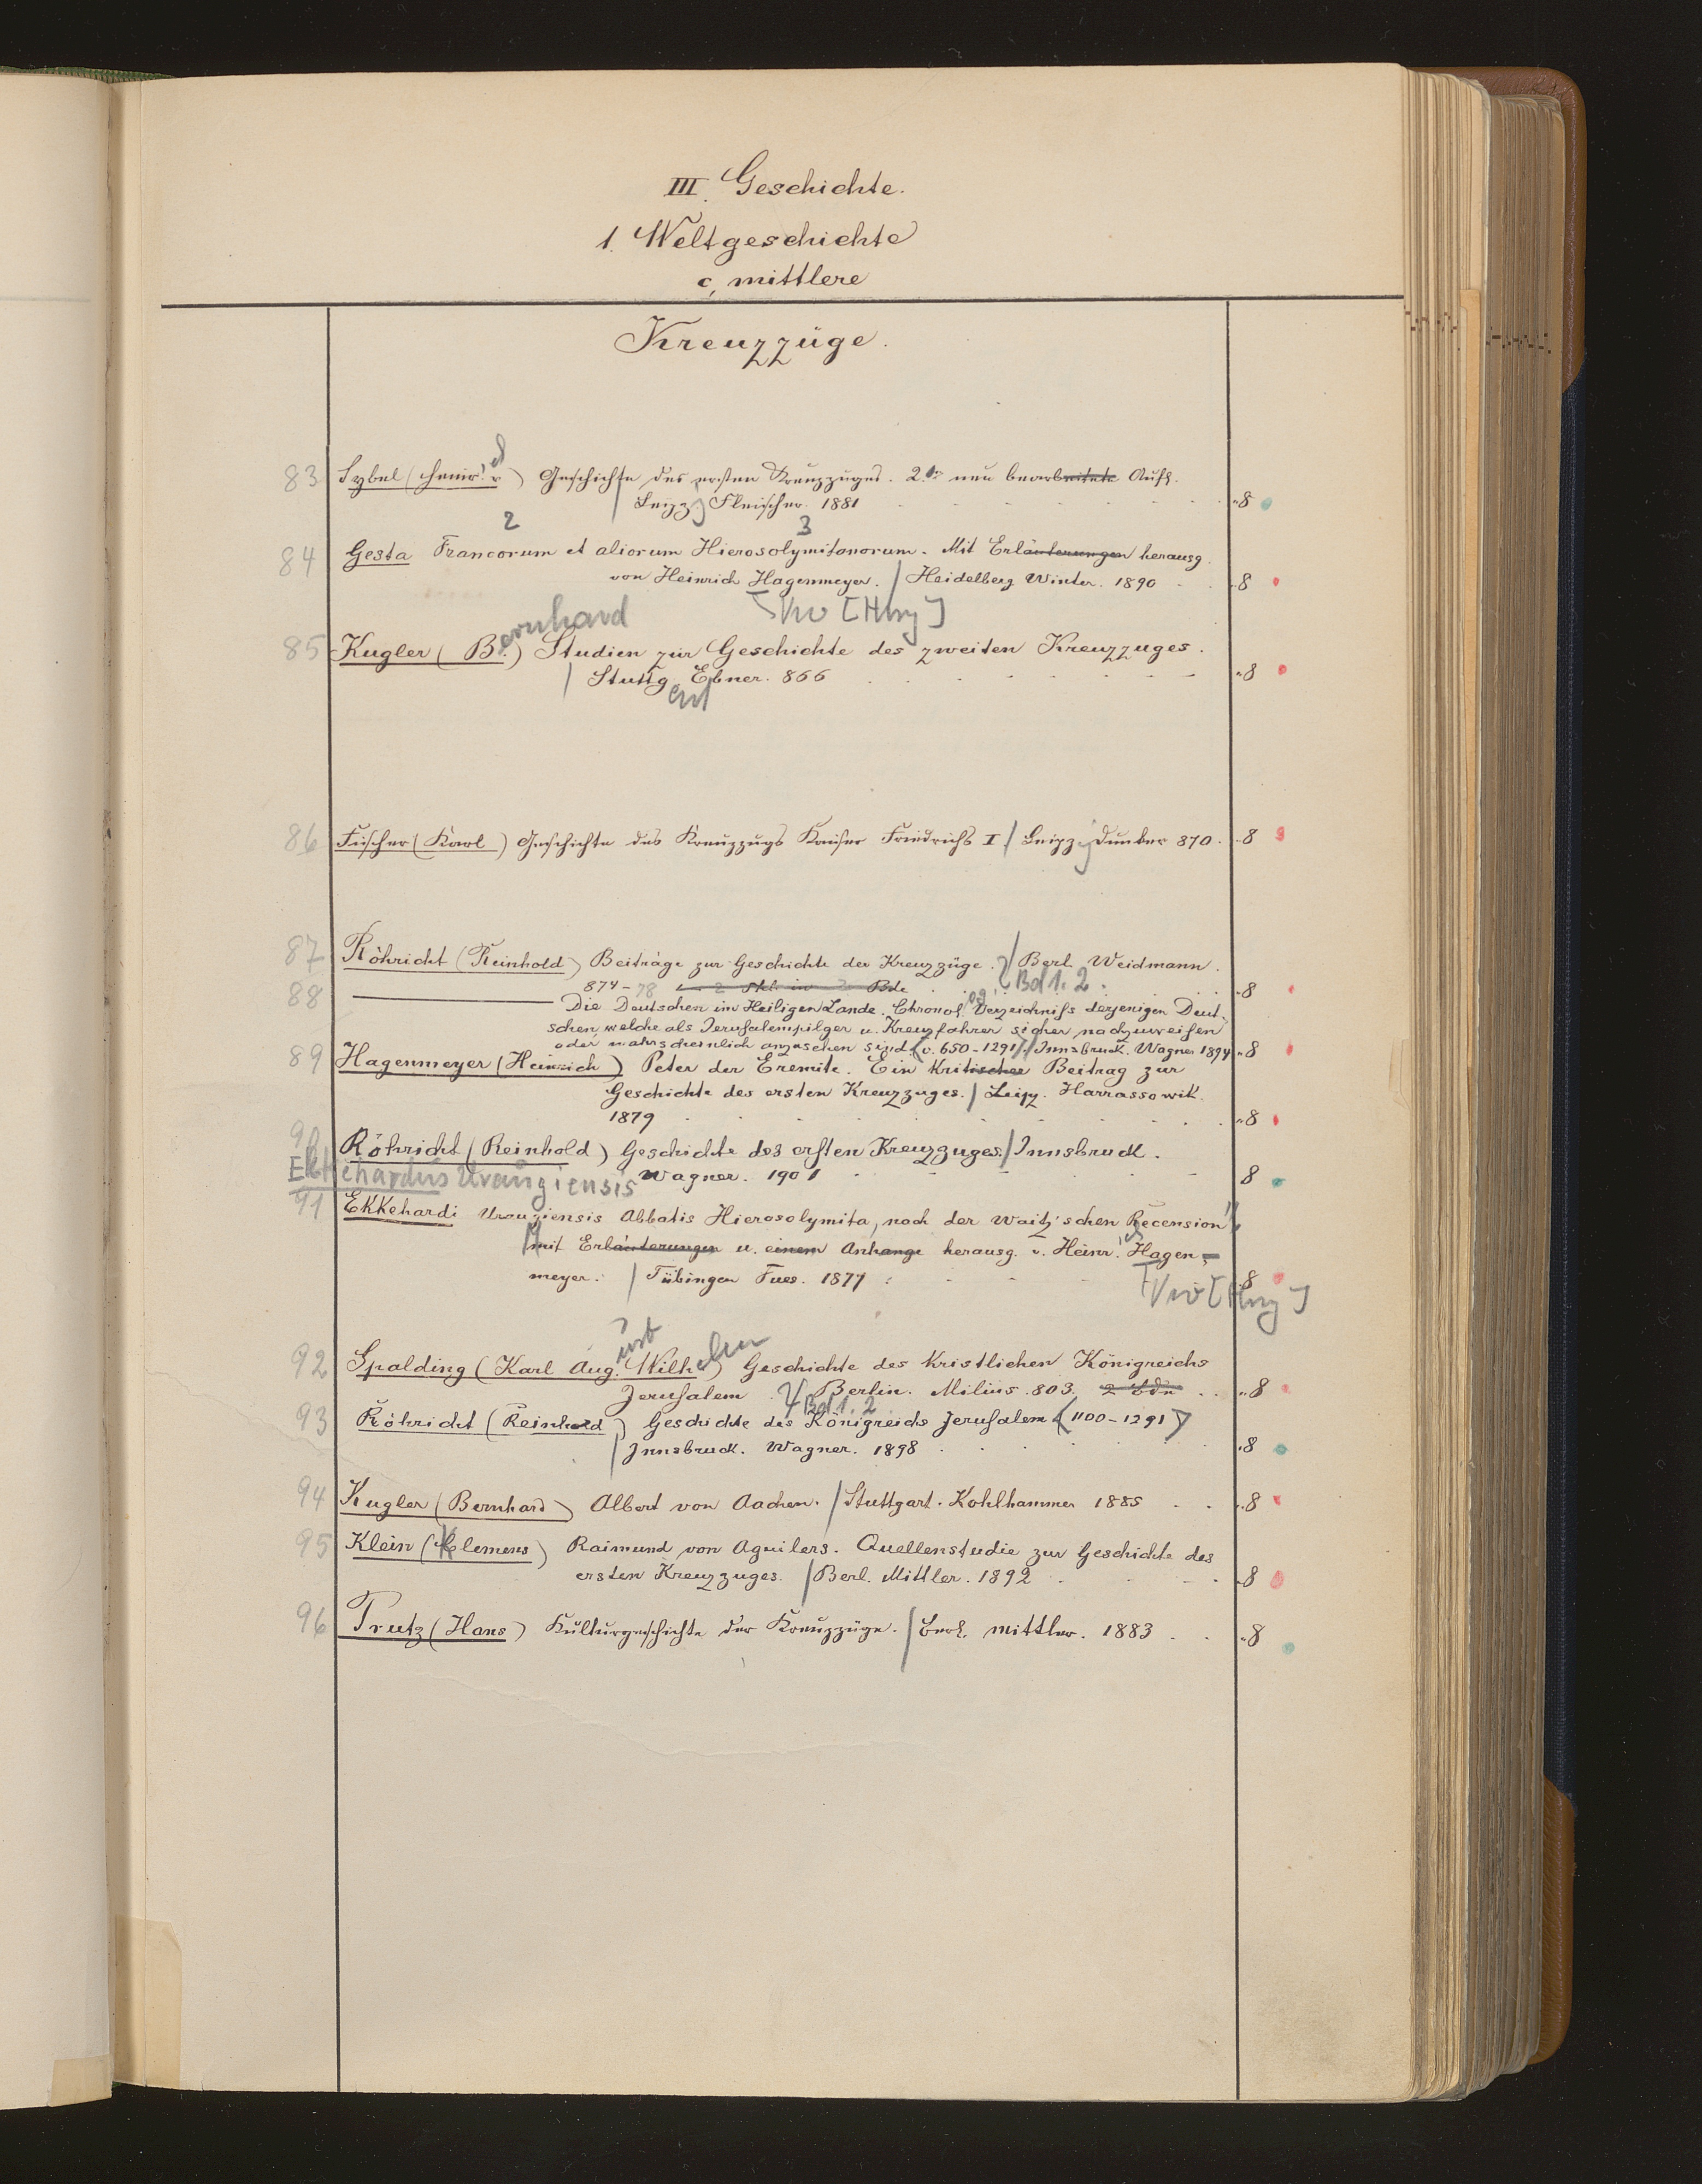 III. Geschichte.
1. Weltgeschichte
c, mittlere
Kreuzzüge.
83 Sybel (Heinr. v) Geschichte des ersten Kreuzzuges. 2te neu bearbeitete Aufl.
Leipzg Fleischer. 1881 8
2 3
84 Gesta Francorum et aliorum Hierosolymitanorum. Mit Erläuterungen herausg.
von Heinrich Hagenmeyer. / Heidelberg Winter. 1890 8
ernhard Vw [Hrsg]
85 Kugler (B.) Studien zur Geschichte des zweiten Kreuzzuges.
/ Stuttg Ebner. 866 8
86 Fischer (Karl) Geschichte des Kreuzzugs Kaiser Friedrichs I / Leipzg Dunker 870. 8
87 Röhricht (Reinhold) Beiträge zur Geschichte der Kreuzzüge. / Berl. Weidmann.
874-78 2 Bde Bd 1. 2. 8
88 ——— Die Deutschen im Heiligen Lande. Chronol. Verzeichniss derjenigen Deut-
schen, welche als Jerusalempilger u. Kreuzfahrer sicher nachzuweisen
oder wahrscheinlich anzusehen sind. (v. 650-1291) / Innsbruck. Wagner 1894 8
89 Hagenmeyer (Heinrich) Peter der Eremite. Ein kritischer Beitrag zur
Geschichte des ersten Kreuzzuges. / Leipz. Harrassowik.
1879 8
90 Röhricht (Reinhold) Geschichte des ersten Kreuzzuges. / Innsbruck.
Wagner. 1901 8
Ekkehardus Uraugiensis
91 Ekkehardi Uraugiensis Abbatis Hierosolymita, nach der Waitz'schen Recension
mit Erläuterungen u. einem Anhange herausg. v. Heinr. Hagen-
meyer. / Tübingen Fues. 1877 8
Vw [Hrsg]
ust elm
92 Spalding (Karl Aug. Wilh) Geschichte des Kristlichen Königreichs
Jerusalem / Berlin. Milius. 803. 2 Bde 8
Bd 1. 2
93 Röhricht (Reinhold) Geschichte des Königreichs Jerusalem (1100-1291)
/ Innsbruck. Wagner. 1898 8
94 Kugler (Bernhard) Albert von Aachen. / Stuttgart. Kohlhammer 1885 8
95 Klein (Clemens) Raimund von Aguilers. Quellenstudie zur Geschichte des
ersten Kreuzzuges. / Berl. Mittler. 1892 8
96 Prutz (Hans) Kulturgeschichte der Kreuzzüge. / Berl. Mittler. 1883 8